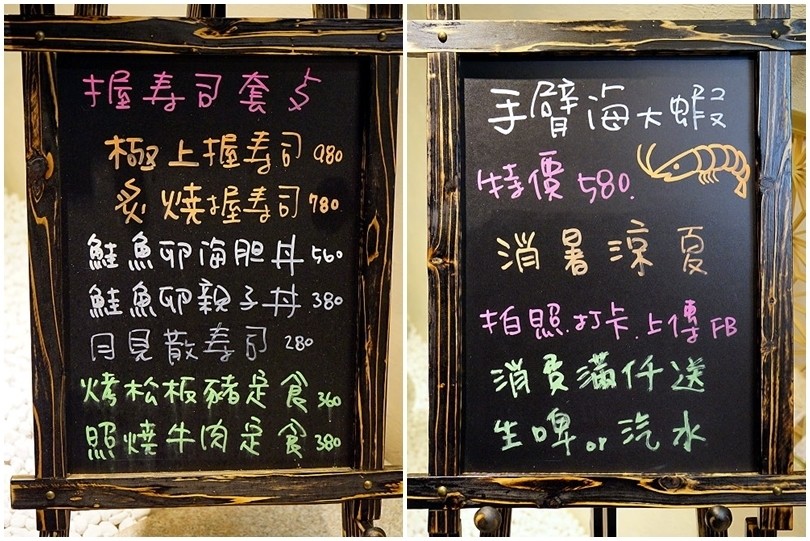 握壽司套餐
極上握壽司 980
炙燒握壽司 780
鮭魚卵海胆丼 560
鮭魚卵親子丼 380
月見散壽司 280
烤松板豬定食 360
照燒牛肉定食 380
手臂海大蝦
特價 580.
消暑涼夏
拍照.打卡.上傳FB
消費滿仟送
生啤or汽水